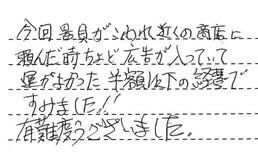 今回器具がこわれ近くの商店に
頼んだ時ちょど広告が入っていて
運がよかった半額以下の経費で
すみました!!
有難度うございました。